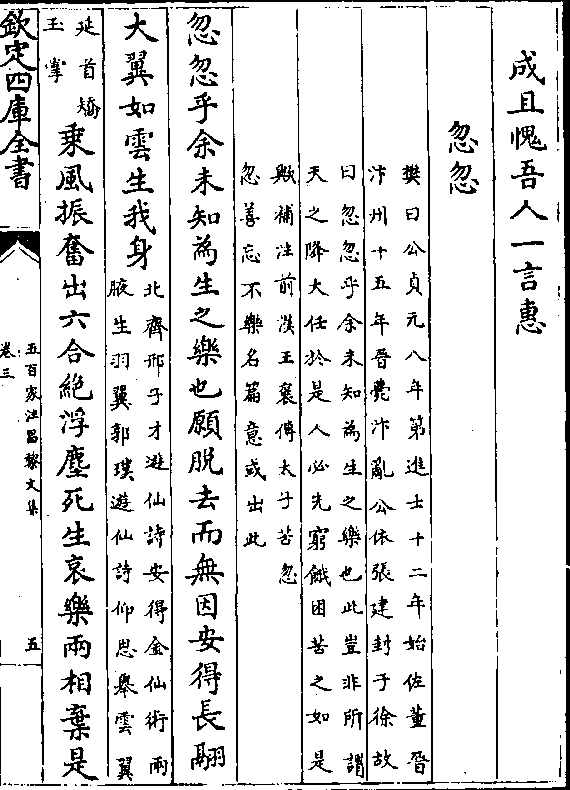 成且愧吾人一言惠
忽忽
樊曰公貞元八年第進士十二年始佐董晉
汴州十五年晉薨汴亂公依張建封于徐故
曰忽忽乎余未知為生之樂也此豈非所謂
天之降大任於是人必先窮餓困苦之如是
歟補注前漢王襃傳太子苦忽
忽善忘不樂名篇意或出此
忽忽乎余未知為生之樂也願脫去而無因安得長翮
大翼如雲生我身
北齊邢子才遊仙詩安得金仙術兩
腋生羽翼郭璞遊仙詩仰思舉雲翼
延首矯
玉掌
乘風振奮出六合絶浮塵死生哀樂兩相棄是
欽定四庫全書
卷三
五百家注昌黎文集
五